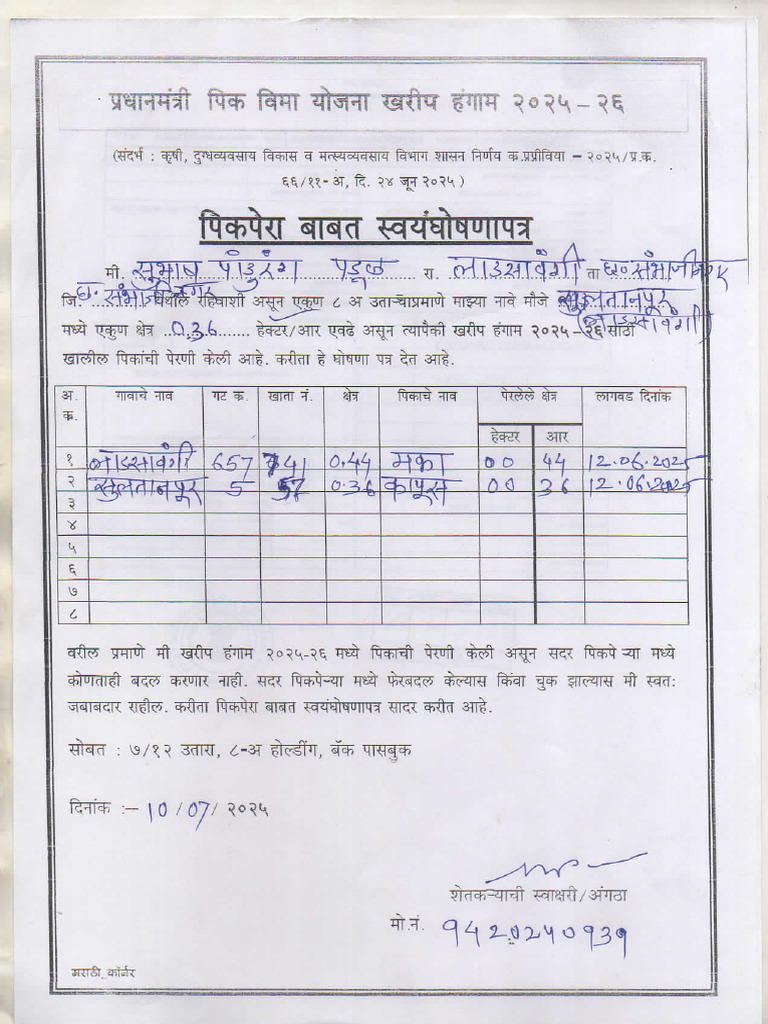 प्रधानमंत्री पिक विमा योजना खरीप हंगाम २०२५ – २६
(संदर्भ : कृषी, दुग्धव्यवसाय विकास व मत्स्यव्यवसाय विभाग शासन निर्णय क्र.प्रपीविया – २०२५/प्र.क.
६६/११- अं, दि. २४ जून २०२५ )
पिकपेरा बाबत स्वयंघोषणापत्र
मी. सुभाष पांडुरंग पडूळ रा. लाडसावंगी ता छ. संभाजीनगर
जि. छ. संभाजीनगर येथील रहिवाशी असून एकुण ८ अ उताऱ्याप्रमाणे माझ्या नावे मौजे सुलतानपूर
(लाडसावंगी)
मध्ये एकुण क्षेत्र ०.३६ हेक्टर/आर एवढे असून त्यापैकी खरीप हंगाम २०२५ – २६ साठी
खालील पिकांची पेरणी केली आहे. करीता हे घोषणा पत्र देत आहे.
अ. क्र. गावाचे नाव गट क्र. खाता नं. क्षेत्र पिकाचे नाव पेरलेले क्षेत्र लागवड दिनांक
हेक्टर आर
१ लाडसावंगी 657 741 0.44 मका 00 44 12.06.2025
२ सुलतानपूर 5 57 0.36 कापूस 00 36 12.06.2025
३
४
५
६
७
८
वरील प्रमाणे मी खरीप हंगाम २०२५-२६ मध्ये पिकाची पेरणी केली असून सदर पिकपेऱ्या मध्ये
कोणताही बदल करणार नाही. सदर पिकपेऱ्या मध्ये फेरबदल केल्यास किंवा चुक झाल्यास मी स्वतः
जबाबदार राहील. करीता पिकपेरा बाबत स्वयंघोषणापत्र सादर करीत आहे.
सोबत : ७/१२ उतारा, ८-अ होल्डींग, बँक पासबुक
दिनांक :– 10 / 07 / २०२५
शेतकऱ्याची स्वाक्षरी/अंगठा
मो.नं. 9420240939
मराठी_कॉर्नर